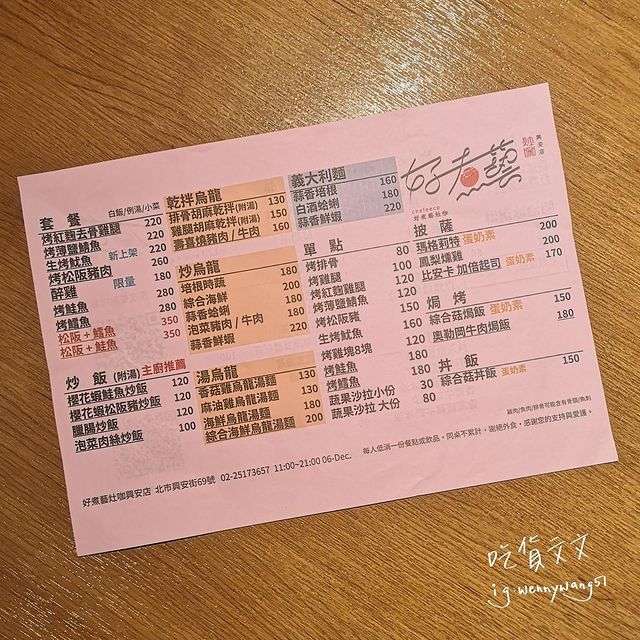 好煮藝
興安店
套餐 白飯/例湯/小菜
烤紅麴去骨雞腿 220
烤薄鹽鯖魚 220
生烤魷魚 新上架 220
烤松阪豬肉 260
醉雞 限量 220
烤鮭魚 280
烤鱈魚 280
松阪+鱈魚 350
松阪+鮭魚 350
炒飯(附湯) 主廚推薦
櫻花蝦鮭魚炒飯 120
櫻花蝦松阪豬炒飯 120
臘腸炒飯 120
泡菜肉絲炒飯 100
乾拌烏龍
排骨胡麻乾拌(附湯) 130
雞腿胡麻乾拌(附湯) 150
壽喜燒豬肉/牛肉 160
炒烏龍
培根時蔬 180
綜合海鮮 200
蒜香蛤蜊 180
泡菜豬肉/牛肉 180
蒜香鮮蝦 220
湯烏龍
香菇雞烏龍湯麵 130
麻油雞烏龍湯麵 130
海鮮烏龍湯麵 180
綜合海鮮烏龍湯麵 200
義大利麵
蒜香培根 160
白酒蛤蜊 180
蒜香鮮蝦 220
單點
烤排骨 80
烤雞腿 100
烤紅麴雞腿 120
烤薄鹽鯖魚 120
烤松阪豬 160
生烤魷魚 120
烤雞塊8塊 120
烤鮭魚 180
烤鱈魚 180
蔬果沙拉小份 30
蔬果沙拉 大份 80
披薩
瑪格莉特 蛋奶素 200
鳳梨燻雞 200
比安卡 加倍起司 蛋奶素 170
焗烤
綜合菇焗飯 蛋奶素 150
奧勒岡牛肉焗飯 180
丼飯
綜合菇丼飯 蛋奶素 150
好煮藝灶咖興安店 北市興安街69號 02-25173657 11:00~21:00 06-Dec.
每人低消一份餐點或飲品,同桌不累計,謝絕外食,感謝您的支持與愛護。
吃貨文文
ig:wennywang51